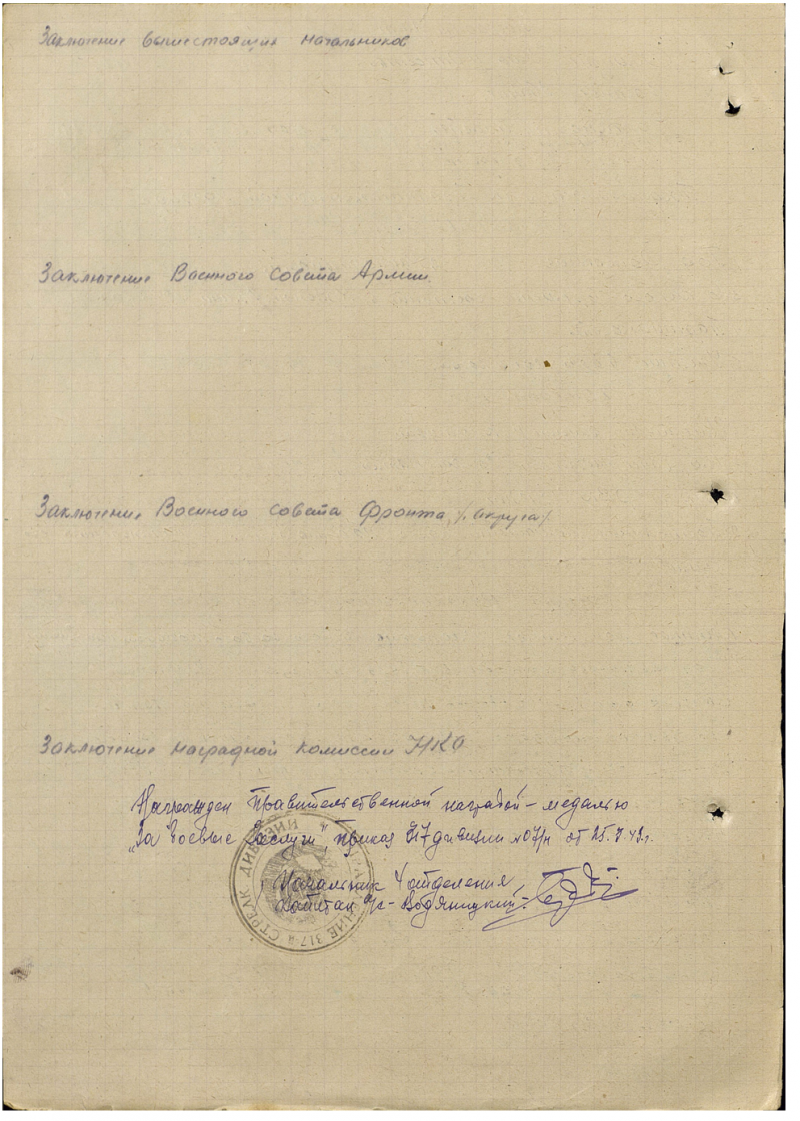 Заключение вышестоящих начальников
Заключение Военного совета Армии
Заключение Военного совета Фронта, /округа/
Заключение наградной комиссии НКО
Награжден Правительственной наградой – медалью
„За боевые заслуги" приказ 317 дивизии №07/н от 25.7.43г.
Начальник 4 отделения
Капитан а/с – Водяницкий
317-Я СТРЕЛК ДИВИЗИЯ